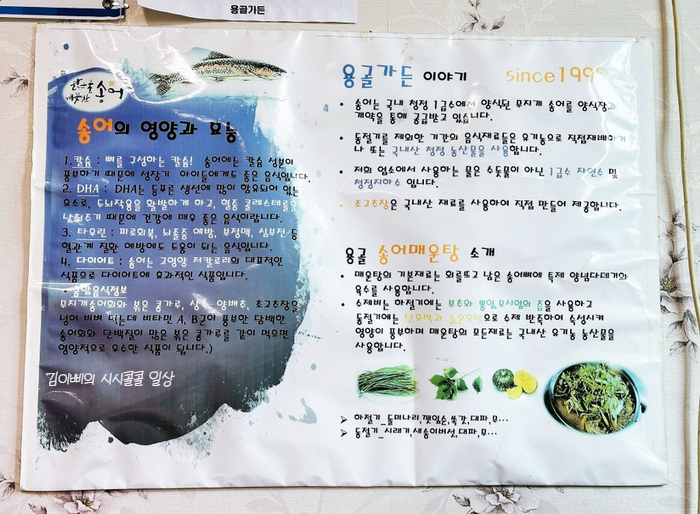 용골가든
맑은물
송어
송어의 영양과 효능
1. 칼슘 : 뼈를 구성하는 칼슘! 송어에는 칼슘 성분이
풍부하기 때문에 성장기 아이들에게도 좋은 음식입니다.
2. DHA : DHA는 등푸른 생선에 많이 함유되어 있는
요소로, 두뇌작용을 활발하게 하고, 혈중 콜레스테롤을
낮춰주기 때문에 건강에 매우 좋은 음식이랍니다.
3. 타우린 : 피로회복, 뇌졸중 예방, 부정맥, 심부전 등
혈관계 질환 예방에도 도움이 되는 음식입니다.
4. 다이어트 : 송어는 고영양 저칼로리의 대표적인
식품으로 다이어트에 효과적인 식품입니다.
· 궁합음식정보
무지개송어회와 볶은 콩가루, 상추, 양배추, 초고추장을
넣어 비벼 먹는데 비타민 A, B군이 풍부한 담백한
송어회와 단백질이 많은 볶은 콩가루를 같이 먹으면
영양적으로 우수한 식품이 됩니다.)
김이삐의 시시콜콜 일상
용골가든 이야기 since199
• 송어는 국내 청정 1급수에서 양식된 무지개 송어를 양식장과
계약을 통해 공급받고 있습니다.
• 동절기를 제외한 기간의 음식재료들은 유기농으로 직접재배하거
나 또는 국내산 청정 농산물을 사용합니다.
• 저희 업소에서 사용하는 물은 수돗물이 아닌 1급수 자연수 및
청정지하수 입니다.
• 초고추장은 국내산 재료를 사용하여 직접 만들어 제공합니다.
용골 송어매운탕 소개
• 매운탕의 기본재료는 회를뜨고 남은 송어뼈에 특제 양념다대기와
육수를 사용합니다.
• 수제비는 하절기에는 부추와 뽕잎,모시잎의 즙을 사용하고
동절기에는 단호박과 늙은호박으로 수제 반죽하여 숙성시켜
영양이 풍부하며 매운탕의 모든재료는 국내산 유기농 농산물을
사용합니다.
➢ 하절기_돌미나리,깻잎순,쑥갓,대파,무...
➢ 동절기_시래기,새송이버섯,대파,무...